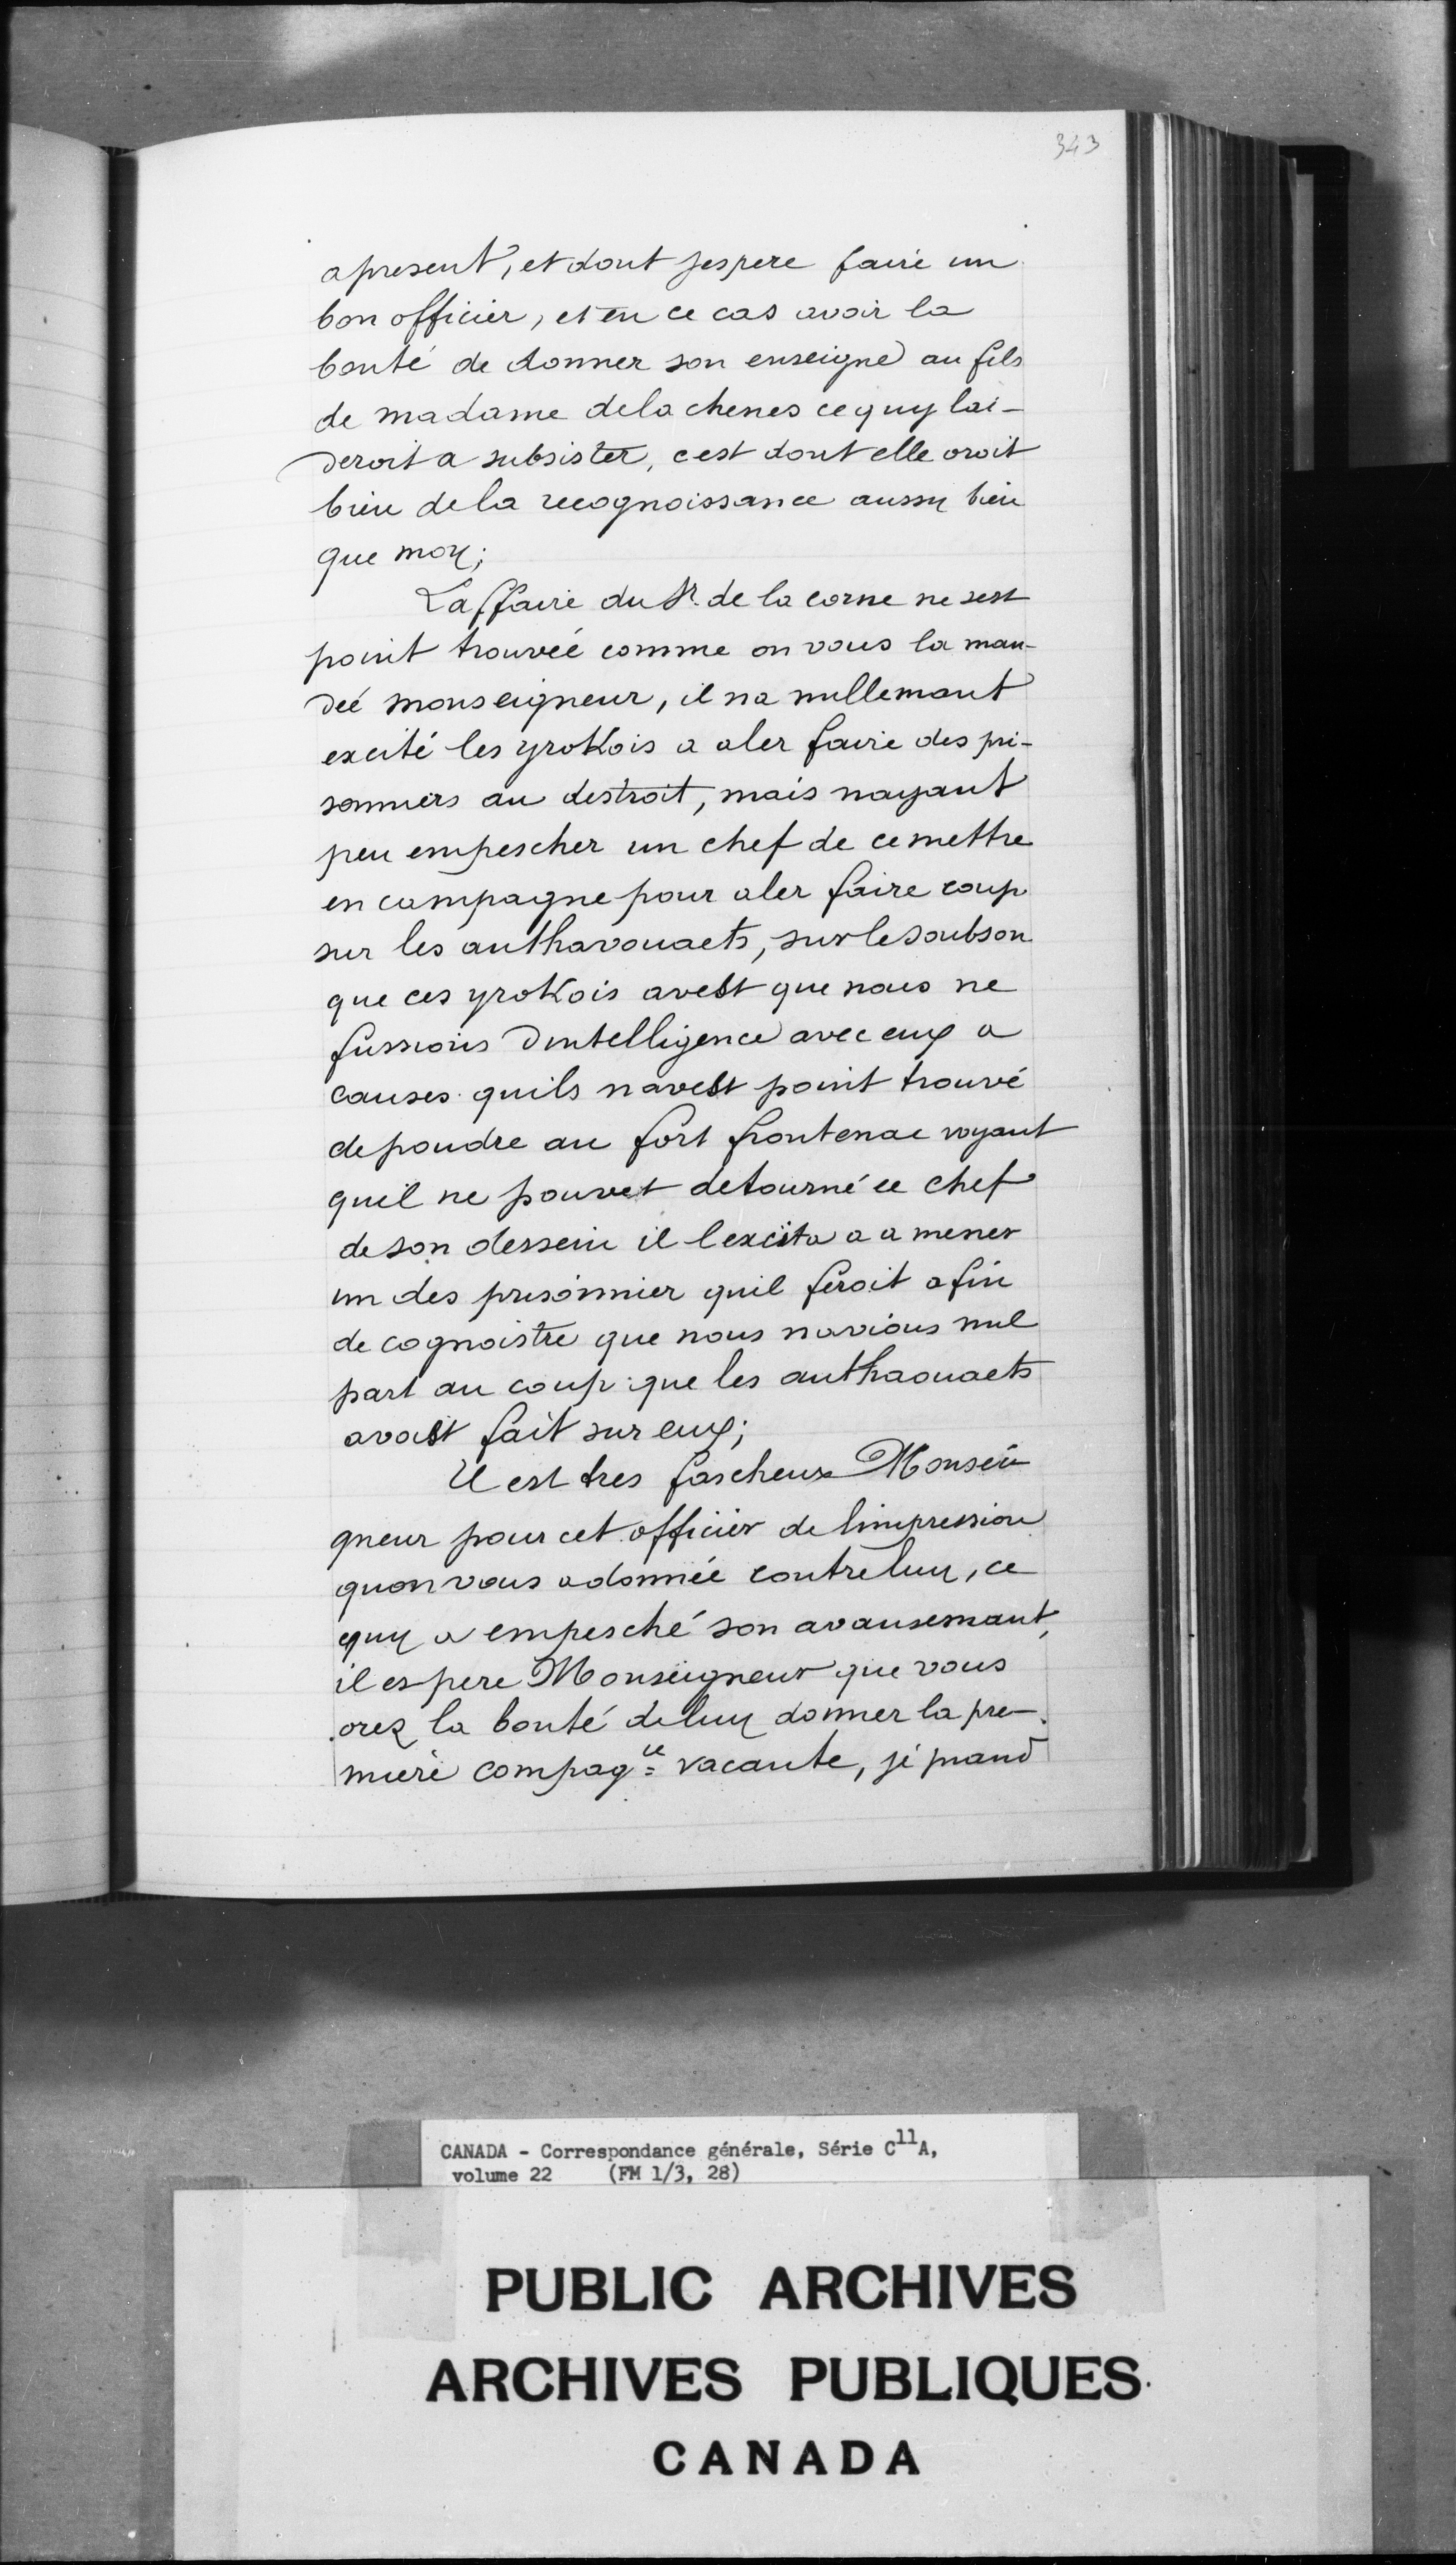 343
apresent, et dont jespere faire un
bon officier, et en ce cas avoir la
bonté de donner son enseigne au fils
de madame dela chenes ce quy lai-
deroit a subsister, cest dont elle oroit
bien de la recognoissance aussy bien
que moy;
Laffaire du Sr. de la corne ne sest
point trouvéé comme on vous la man-
déé monseigneur, il na nullemant
excité les yroKois a aler faire des pri-
sonniers au destroit, mais nayant
peu empescher un chef de ce mettre
en campagne pour aler faire coup
sur les anthavouaets, sur le soubson
que ces yroKois avest que nous ne
fussions dintelligence avec eux a
causes quils navest point trouvé
de poudre au fort frontenac voyant
quil ne pouvet detourné ce chef
de son dessein il lexcita a amener
un des prisonnier quil feroit afin
de cognoistre que nous navions nul
part au coup que les anthaouaets
avaist fait sur eux;
Il est tres fascheux Monsei
gneur pour cet officier de limpression
quon vous a donnéé contre luy, ce
quy a empesché son avansemant,
il espere Monseigneur que vous
orez la bonté de luy donner la pre-
miere compagie vacante, je prand
CANADA - Correspondance générale, Série C11A,
volume 22 (FM 1/3, 28)
PUBLIC ARCHIVES
ARCHIVES PUBLIQUES
CANADA